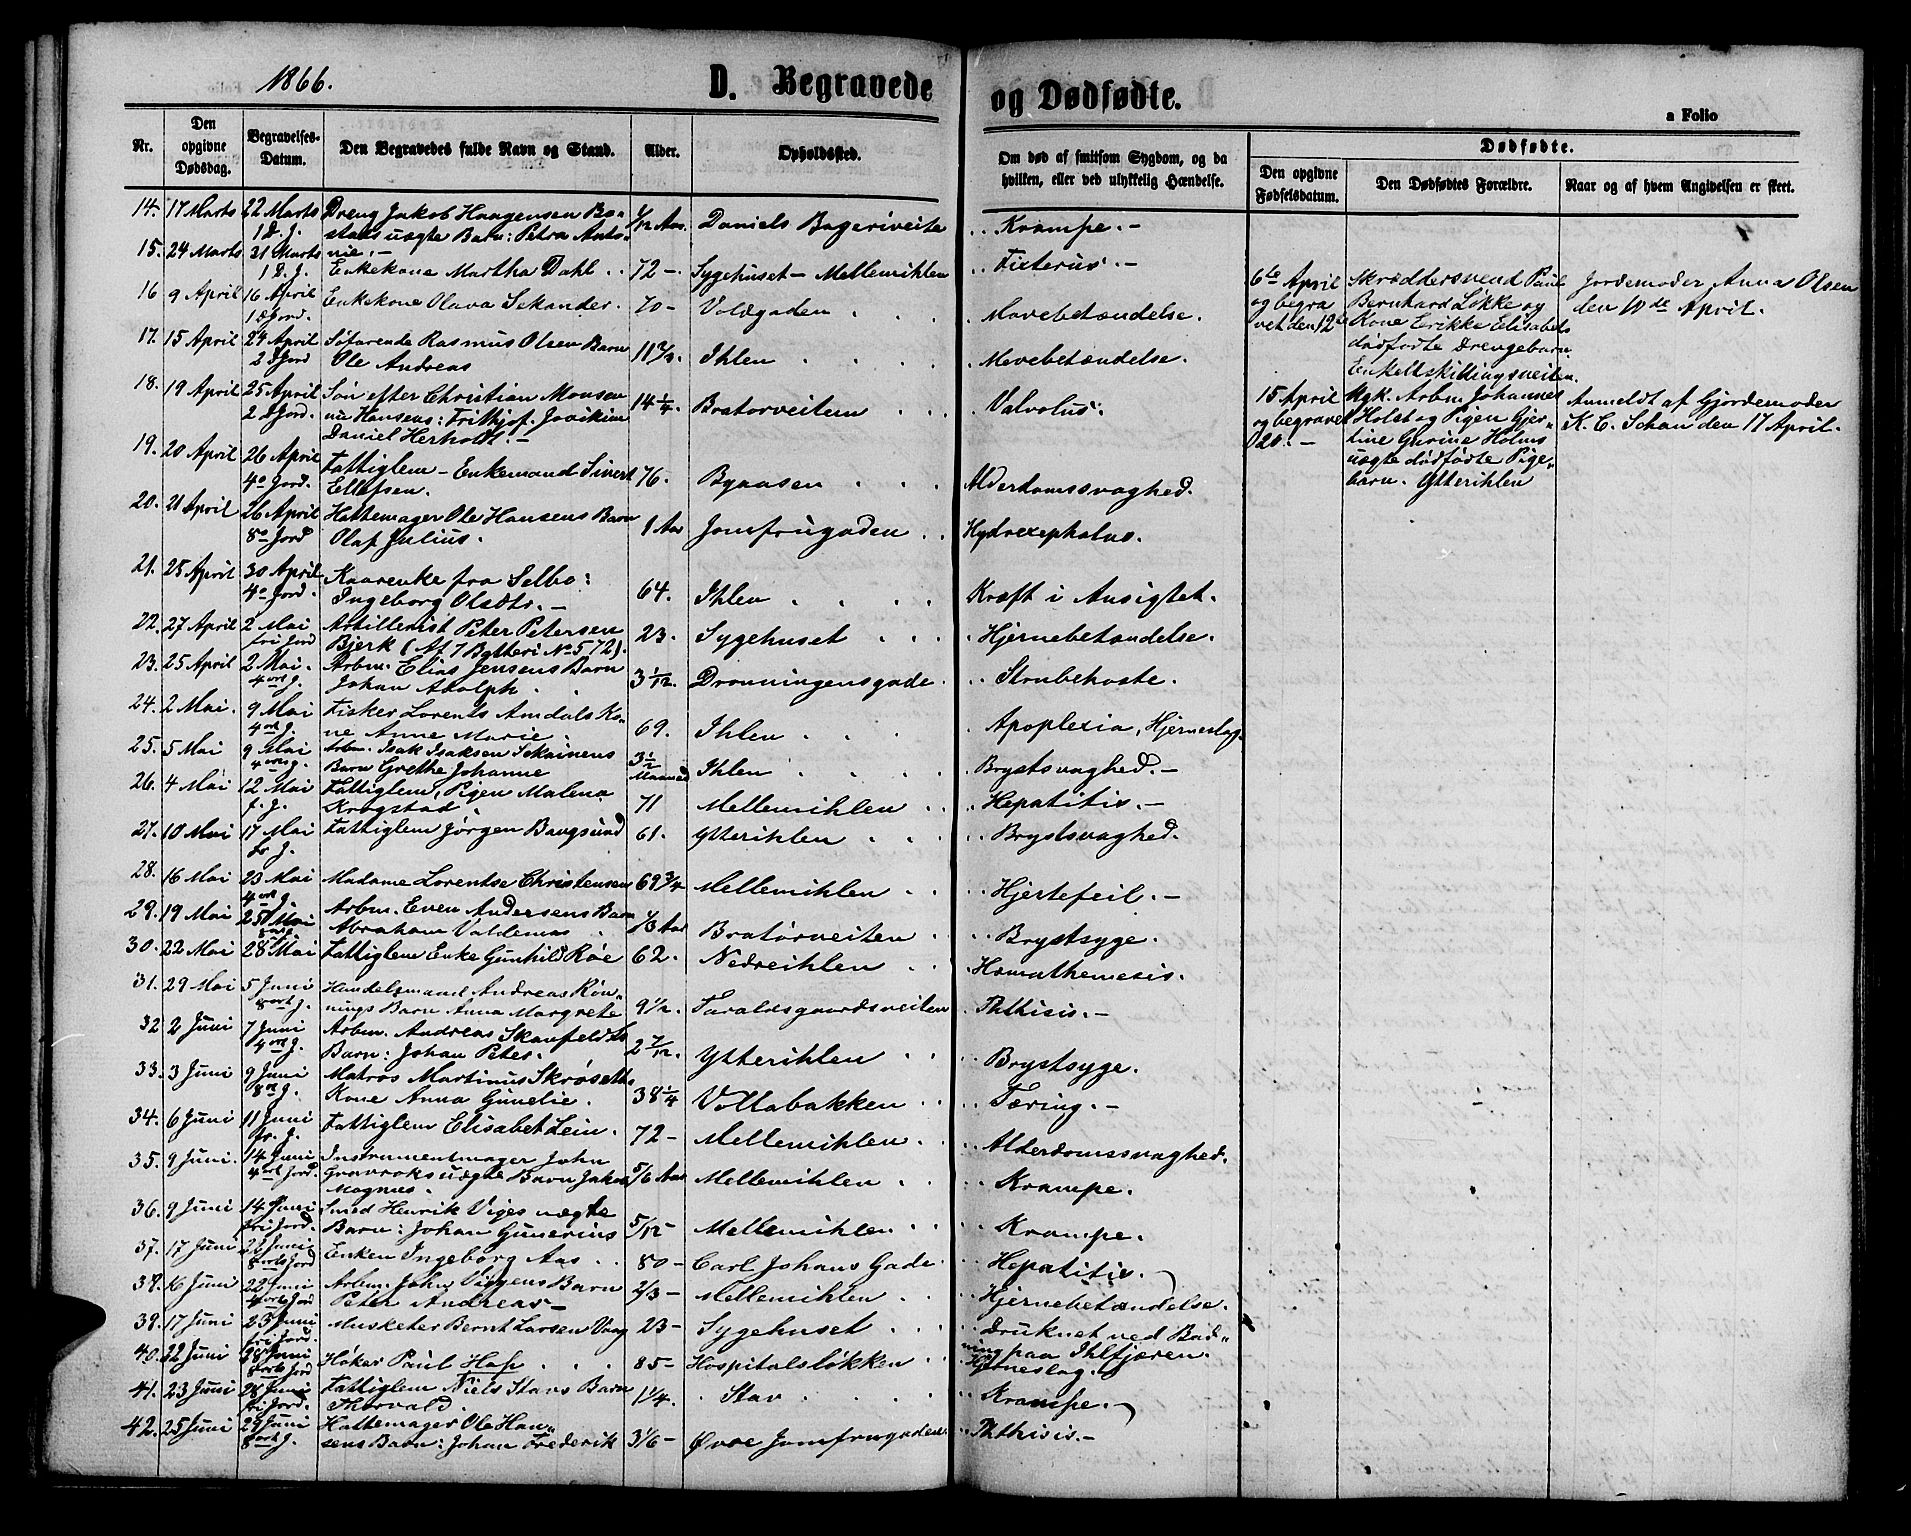 1866.
D. Begravede
og Dødfødte.
a Folio
Nr.
Den opgivne Dødsdag.
Begravelses-Datum.
Den Begravedes fulde Navn og Stand.
Alder.
Opholdssted.
Om død af smitsom Sygdom, og da hvilken, eller ved ulykkelig Hændelse.
Dødfødte.
Den opgivne Fødselsdatum.
Den Dødfødtes Forældre.
Naar og af hvem Angivelsen er skeet.
14. 17 Marts 22 Marts Dreng Jakob Haagensen Bo- 1/12 Aar. Daniels Bageriveite Krampe.
1 D. J. stads uægte Barn: Petra Anto-
15. 24 Marts 31 Marts nie.
1 D. J. Enkekone Martha Dahl 72 Sygehuset - Mellemihlen
16 9 April 16 April Enkekone Olava Sekander. 70 Voldgaden Mavebetændelse.
17. 15 April 24 April Søfarende Rasmus Olsen Barn Ihlen Mavebetændelse.
2 Jord Ole Andreas
18. 19 April 25 April Søn efter Christian Monsen 14 1/4. Bratørveiten
2 Jord. Hansens: Frithjof Joakim
Daniel Herholdt
19. 20 April 26 April Fattiglem - Enkemand Sivert 76. Byaasen Alderdomssvaghed.
4o Jord. Ellefsen.
20. 21 April 26 April Hattemager Ole Hansens Barn 1 Aar Jomfrugaden
8o Jord Olaf Julius.
21. 25 April 30 April Kaarenke fra Selbo: 64. Ihlen Kræft i Ansigtet.
4o Jord. Ingeborg Olsdtr.
22. 27 April 2 Mai Artillerist Peter Petersen 23. Sygehuset Hjernebetændelse.
fri Jord Bjerk (Af 7 Batteri No 572).
23. 25 April 2 Mai. Arbm. Elias Jensens Barn 3 1/12. Dronningensgade Strubehoste.
4 ort J. Johan Adolph
24. 2 Mai. 9 Mai Fisker Lorents Amdals Ko- 69. Ihlen Apoplexia, Hjerneslag.
4 ort J. ne Anne Marie.
25. 5 Mai 9 Mai Arbm. Isak Isaksen Sekainens 3 1/2 Maaned Ihlen Brystsvaghed.
Barn Grethe Johanne
26. 4 Mai 12 Mai Fattiglem, Pigen Malena 71 Mellemihlen Hepatitis.
f. J. Krogstad
27. 10 Mai 17 Mai Fattiglem Jørgen Bangsund 61. Ytterihlen Brystsvaghed.
fr J.
28. 16 Mai 23 Mai Madame Lorentse Christensen 69 3/4 Mellemihlen Hjertefeil.
4 ort J.
29. 19 Mai 25 Mai Arbm. Even Andersens Barn 1/3 Aar Bratørveiten Brystsyge.
Abraham Valdemar
30. 22 Mai 28 Mai Fattiglem Enke Gunhild Røe 62. Nedreihlen Hæmathemesis.
31. 29 Mai 5 Juni Handelsmand Andreas Røn- 9 1/2. Taraldsgaardsveiten Phthisis.
8 ort J. nings Barn Anna Margrete
32 2 Juni 7 Juni Arbm. Andreas Skanfeldts 2 7/12. Ytterihlen Brystsyge.
4 ort J. Barn: Johan Peter.
33. 3 Juni 9 Juni Matros Martinus Skrøseths 38 1/4 Vollabakken Tæring.
J. Kone Anna Gunelie.
34. 6 Juni 11 Juni Fattiglem Elisabet Lein. 72 Mellemihlen Alderdomssvaghed.
fr. J.
35. 9 Juni. 14 Juni Instrumentmager John 5/6 Aar Mellemihlen Krampe.
4 ort Jord. Gravroks uægte Barn Jakob
Magnus.
36. 9 Juni 14 Juni Smed Henrik Viges uægte 5/12 Mellemihlen Krampe.
fri Jord. Barn: Johan Gunerius
37. 17 Juni 22 Juni Enken Ingeborg Aas 80 Carl Johans Gade Hepatitis.
38. 16 Juni 22 Juni Arbm. John Viggens Barn 2/3 Mellemihlen Hjernebetændelse.
4 ort Jord Peter Andreas
39. 17 Juni 23 Juni Musketer Bernt Larsen Vaag 23 Sygehuset Druknet ved Bad-
fri Jord. ning paa Ihlfjæren.
40. 22 Juni Juni Høker Paul Hof 85 Hospitalsløkken Hjerneslag.
41. 23 Juni 28 Juni Fattiglem Niels Stavs Barn 1 1/4. Stav Krampe.
fri Jord. Thorvald.
42. 25 Juni 29 Juni Hattemager Ole Han- 3 1/6 Øvre Jomfrugaden Phthisis.
sens Barn: Johan Frederik
6te April Skræddersvend Paul Jordemoder Anna Olsen
og begra Bernhard Løkke og den 10de April.
vet den 12te Kone Erikke Elisabets
dødfødte Drengebarn.
Enkeltskillingsveiten.
15 April Ugk. Arbm. Johannes Anmeldt af Gjordemoder
og begravet Holst og Pigen Gjer- K. C. Schau den 17 April.
20. tine Gurine Holms
uægte dødfødte Pige-
barn. Ytterihlen